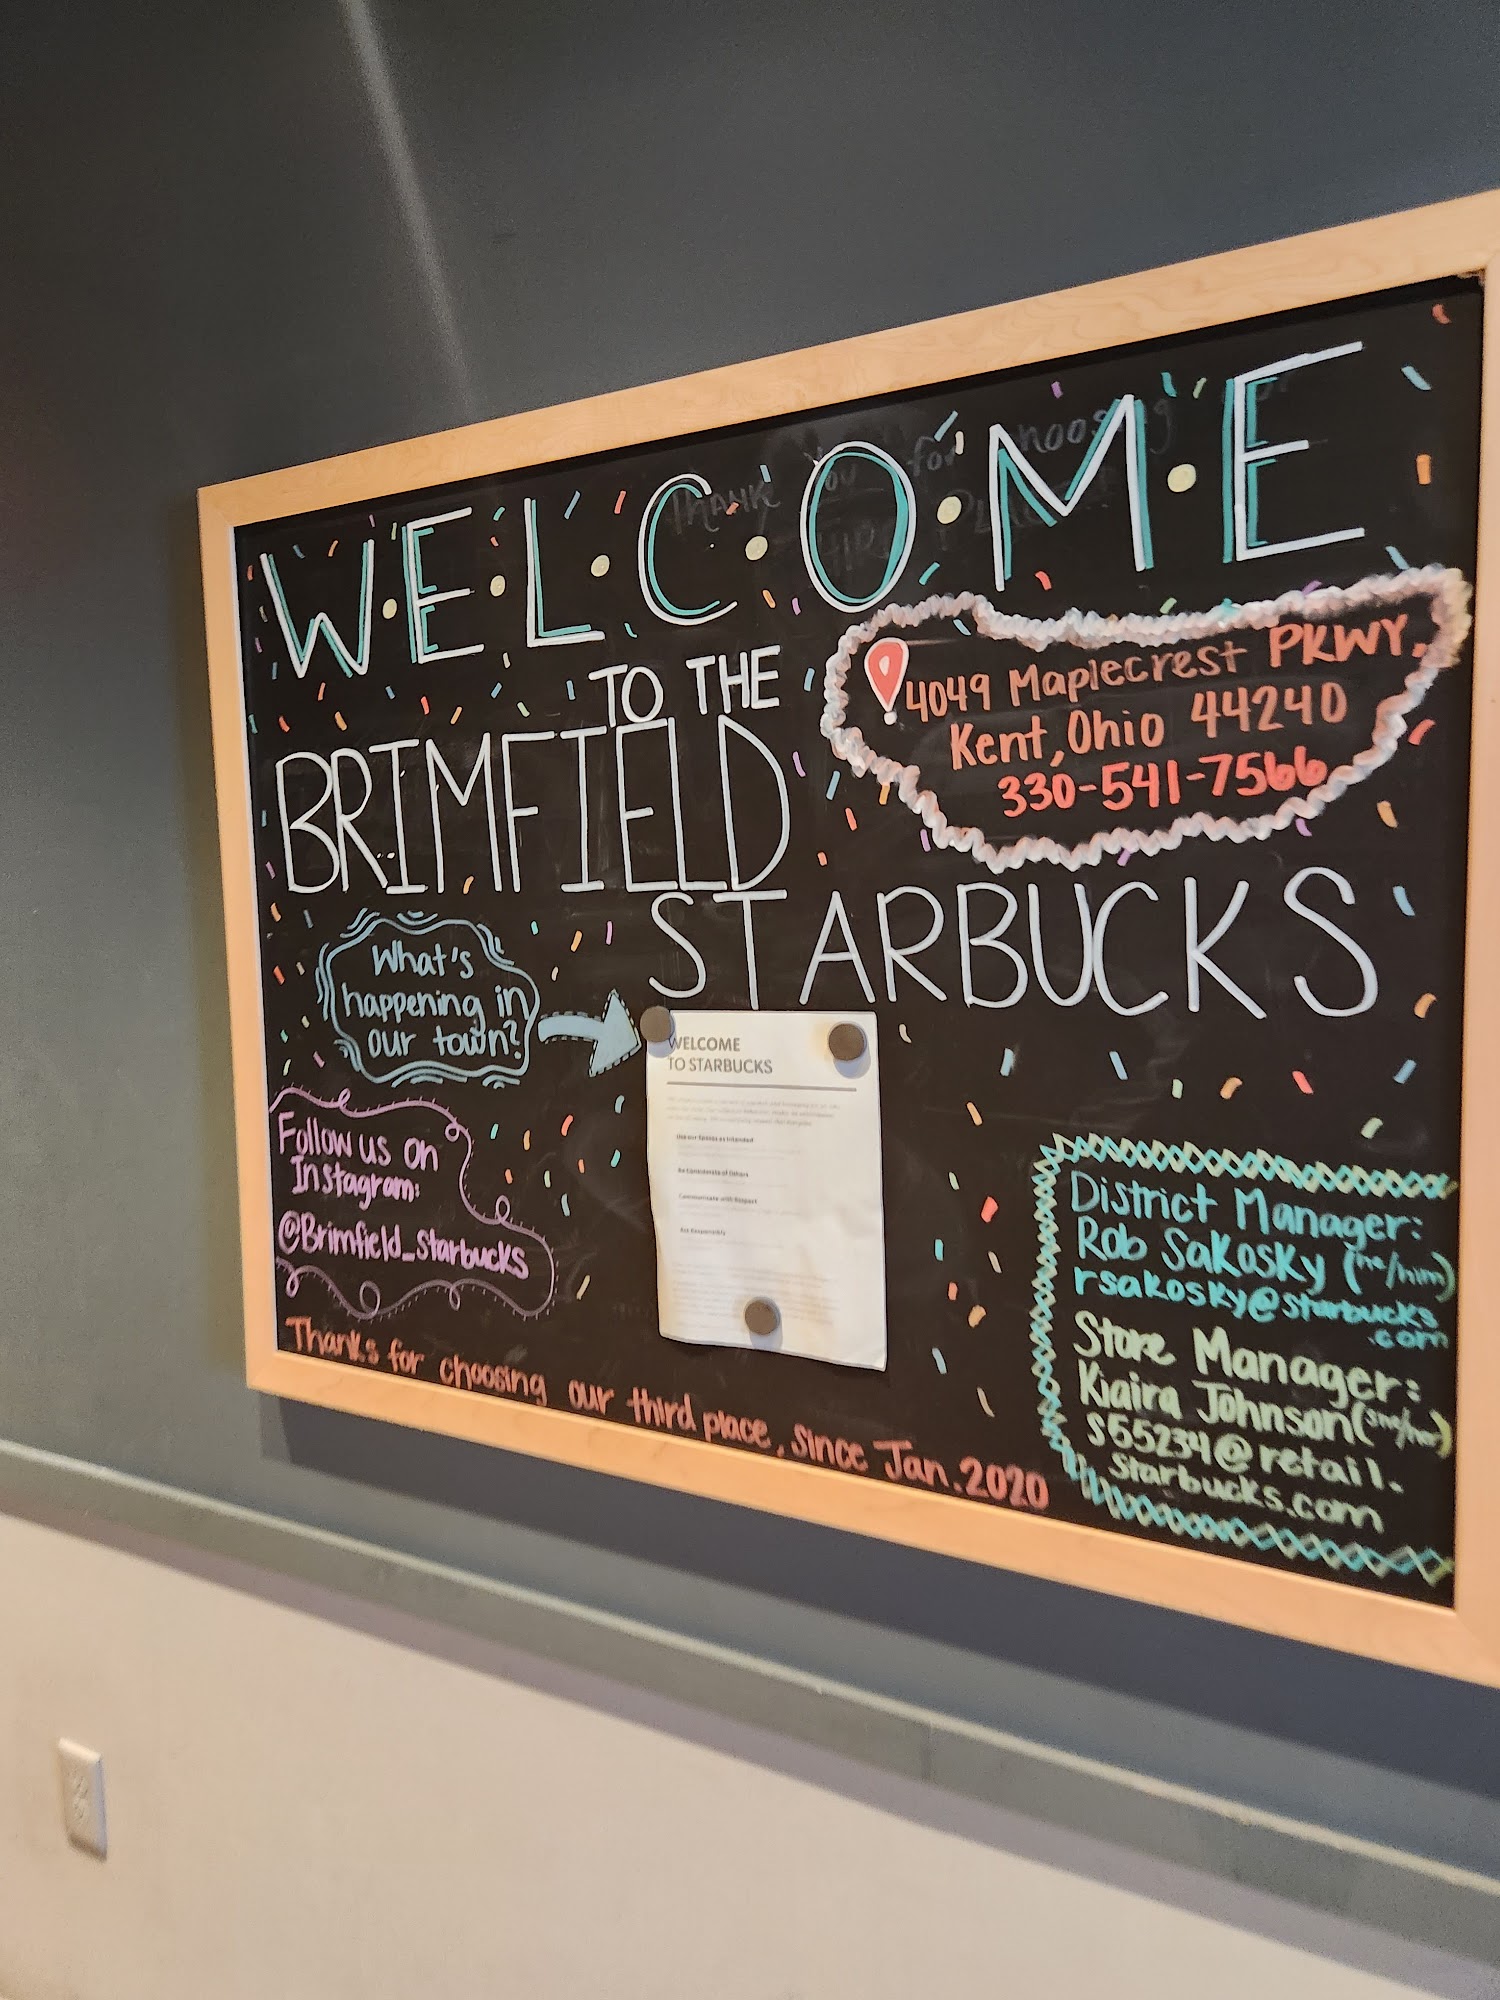 WELCOME
TO THE
BRIMFIELD
STARBUCKS
4049 Maplecrest PKWY,
Kent, Ohio 44240
330-541-7566
What's
happening in
our town?
WELCOME
TO STARBUCKS
Use our Spaces as Intended
Be Considerate of Others
Communicate with Respect
Act Responsibly
Follow us on
Instagram:
@Brimfield_starbucks
Thanks for choosing our third place, since Jan. 2020
District Manager:
Rob Sakosky (he/him)
rsakosky@starbucks
.com
Store Manager:
Kiaira Johnson (she/her)
S55234@retail.
starbucks.com
Thank You for choosing